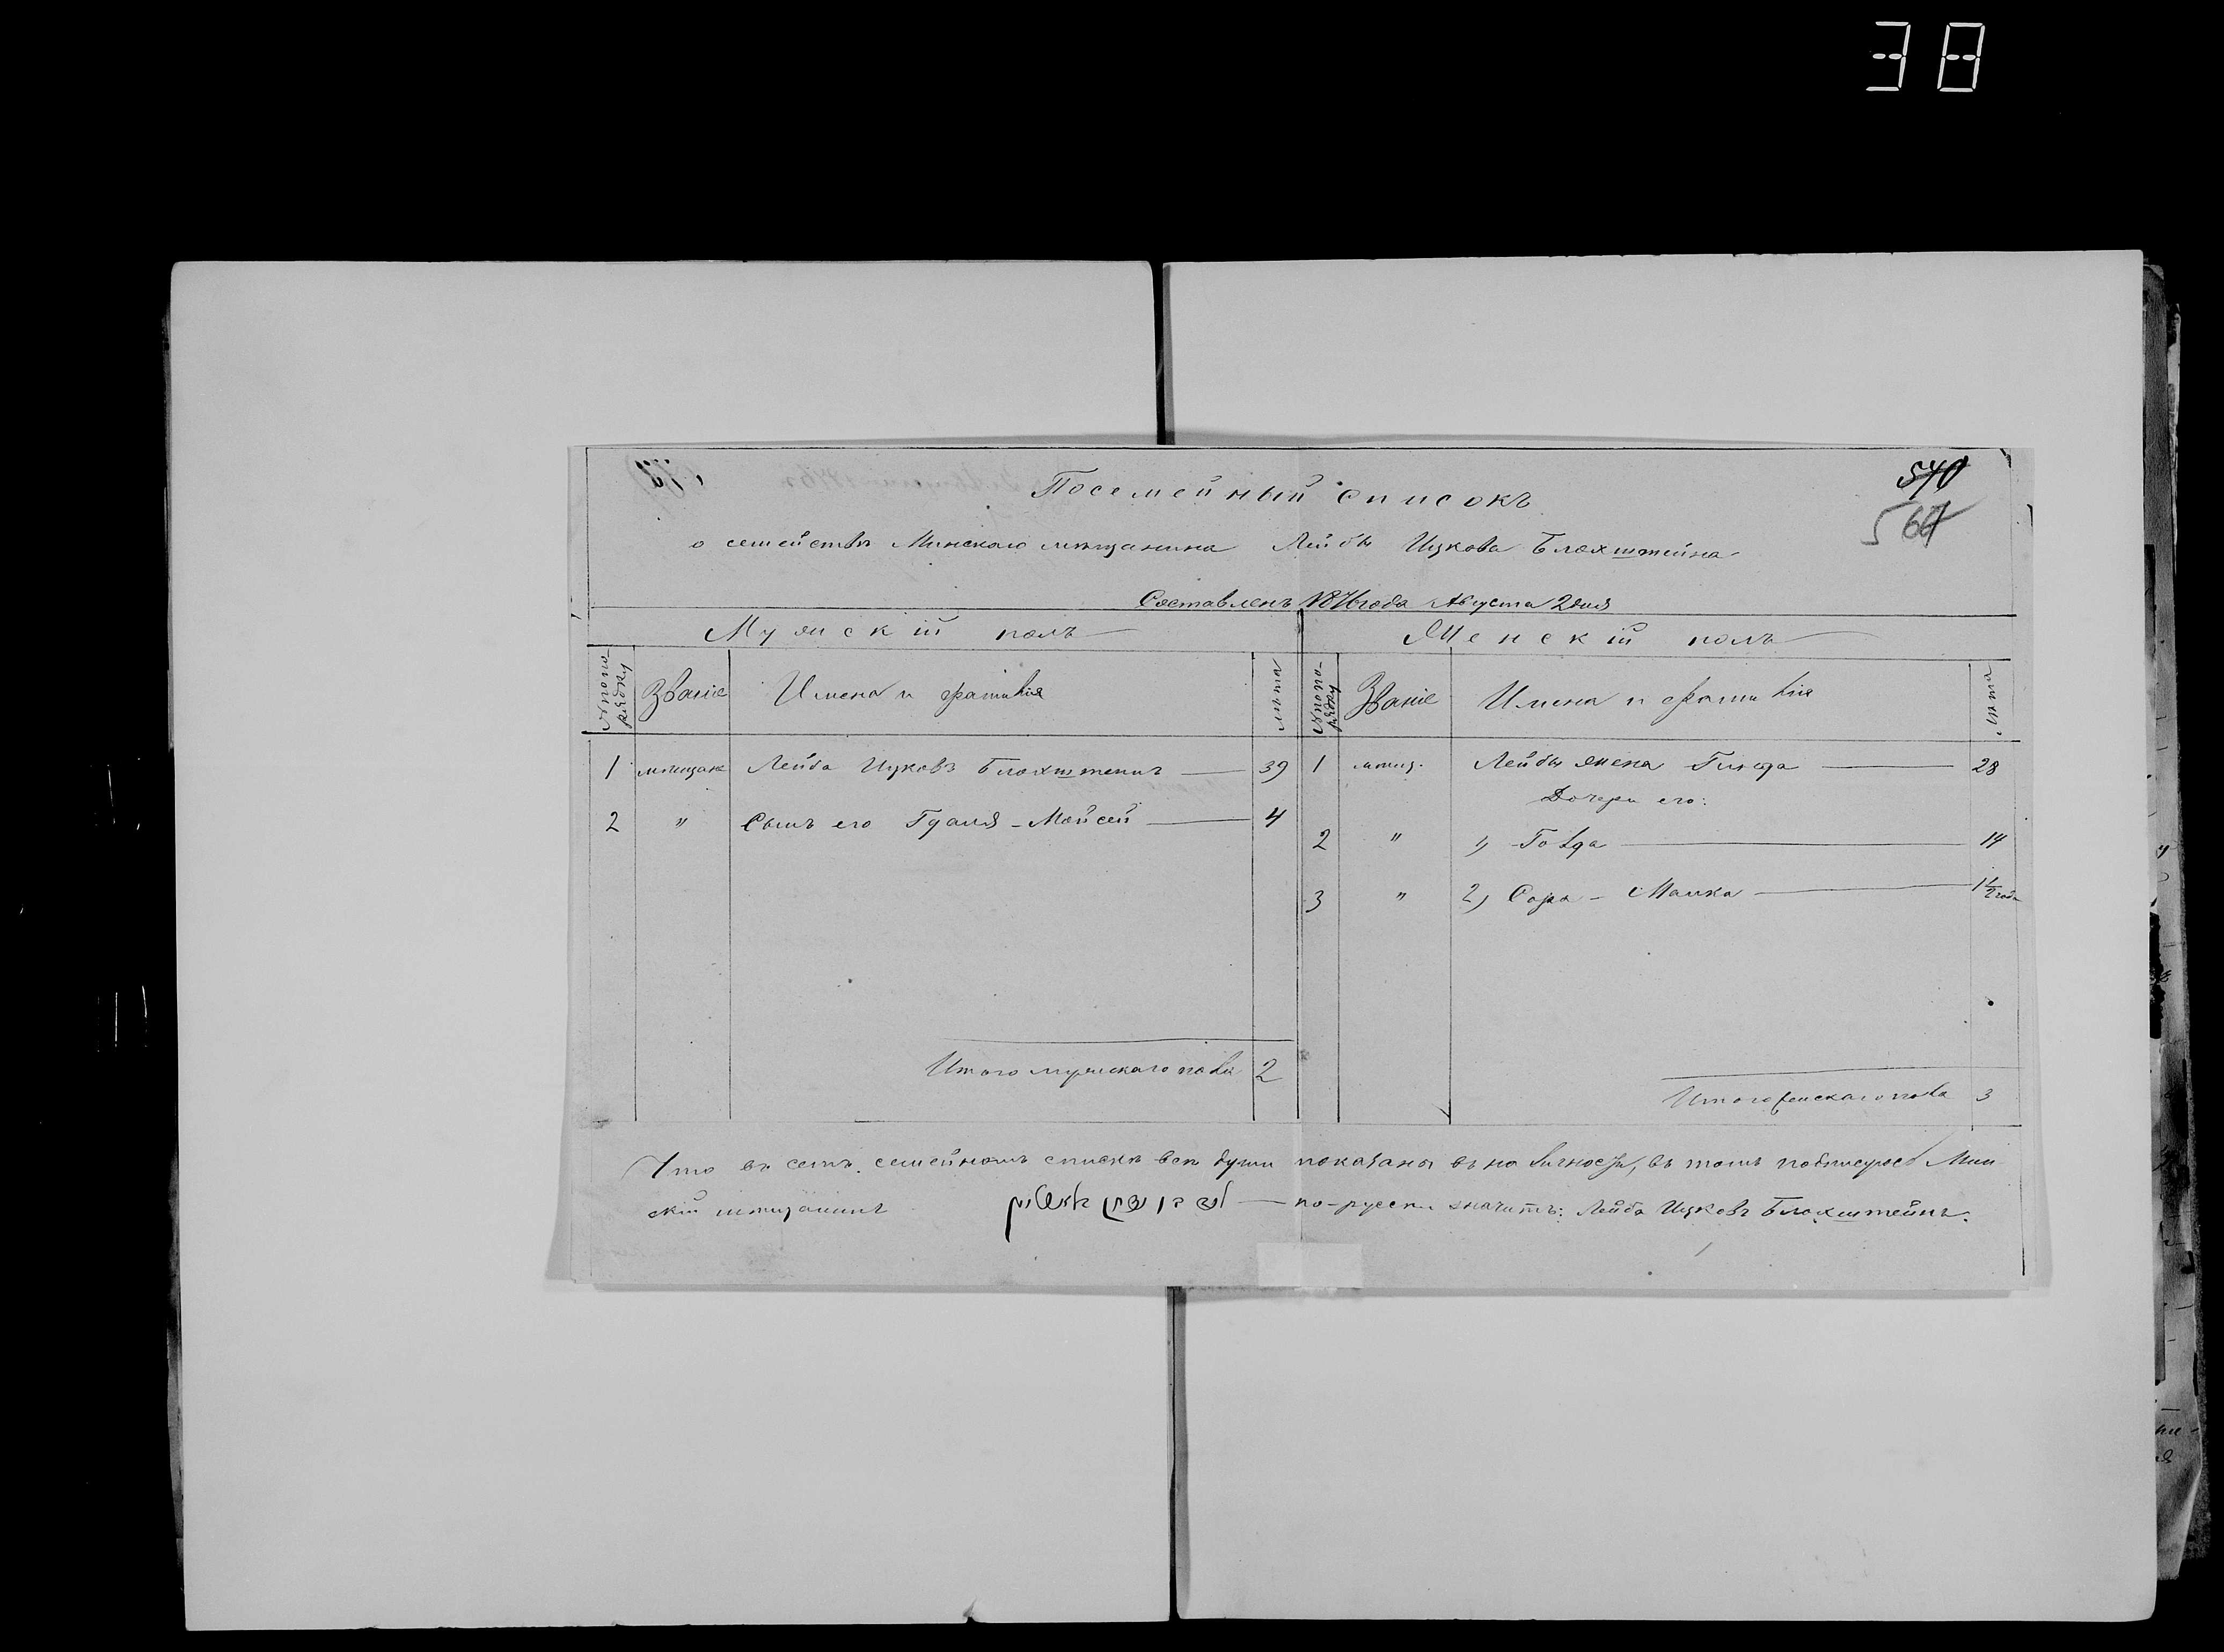 38
540
567
Посемейный списокъ
о семействѣ Минскаго мѣщанина Лейбы Ицкова Блохштейна
Составленъ 1876 года Августа 2 дня
Мужскій полъ
Женскій полъ
№ по порядку Званіе Имена и фамилія лѣта
№ по порядку Званіе Имена и фамилія лѣта
1 мѣщане Лейба Ицковъ Блохштейнъ 39
2 " Сынъ его Гдаля-Мойсей 4
1 мѣщ. Лейбы жена Гинда 28
Дочери его:
2 " 1)Голда 14
3 " 2) Сора-Малка 1 1/2 года
Итого мужскаго пола 2
Итого женскаго пола 3
Что въ семъ семейномъ спискѣ всѣ души показаны въ наличности, въ томъ подписуюсь Мин-
скій мѣщанинъ — по-русски значитъ: Лейба Ицковъ Блохштейнъ.